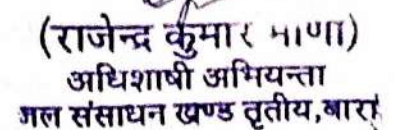 (राजेन्द्र कुमार
अधिशाषी अभियन्ता
जल संसाधन खण्ड तृतीय,बारां